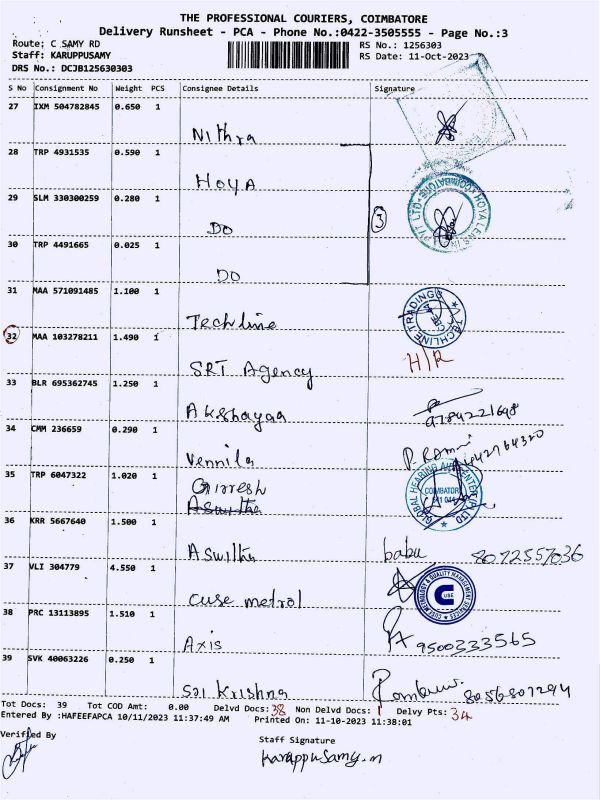 THE PROFESSIONAL COURIERS, COIMBATORE
Delivery Runsheet - PCA - Phone No.:0422-3505555 - Page No.:3
Route: C SAMY RD
RS No.: 1256303
Staff: KARUPPUSAMY
RS Date: 11-Oct-2023
DRS No.: DCJB125630303
S No Consignment No Weight PCS Consignee Details Signature
27 IXM 504782845 0.650 1
Nithra
28 TRP 4931535 0.590 1
HOYA
29 SLM 330300259 0.280 1
DO 3
30 TRP 4491665 0.025 1
DO
31 MAA 571091485 1.100 1
Techline
TECHLINE TRADINGS
32 MAA 103278211 1.490 1
SRT Agency H/R
33 BLR 695362745 1.250 1
Akshayaa 9784221698
34 CMM 236659 0.290 1
Vennila
35 TRP 6047322 1.020 1
Girresh
COIMBATORE
36 KRR 5667640 1.500 1
Aswitha babu 8072557036
37 VLI 304779 4.550 1
Cuse metrol
CUSE
38 PRC 13113895 1.510 1
Axis 9500333565
39 SVK 40063226 0.250 1
Sri Krishna 8056807294
Tot Docs: 39 Tot COD Amt: 0.00 Delvd Docs: 38 Non Delvd Docs: 1 Delvy Pts: 34
Entered By :HAFEEFAPCA 10/11/2023 11:37:49 AM Printed On: 11-10-2023 11:38:01
Verified By
Staff Signature
Karuppusamy.n